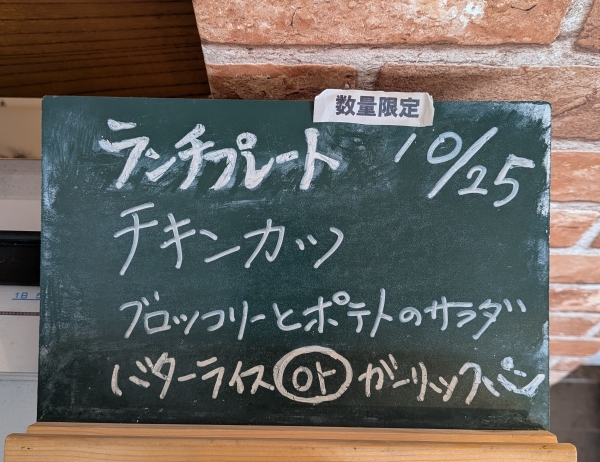 数量限定
ランチプレート 10/25
チキンカツ
ブロッコリーとポテトのサラダ
バターライス or ガーリックパン